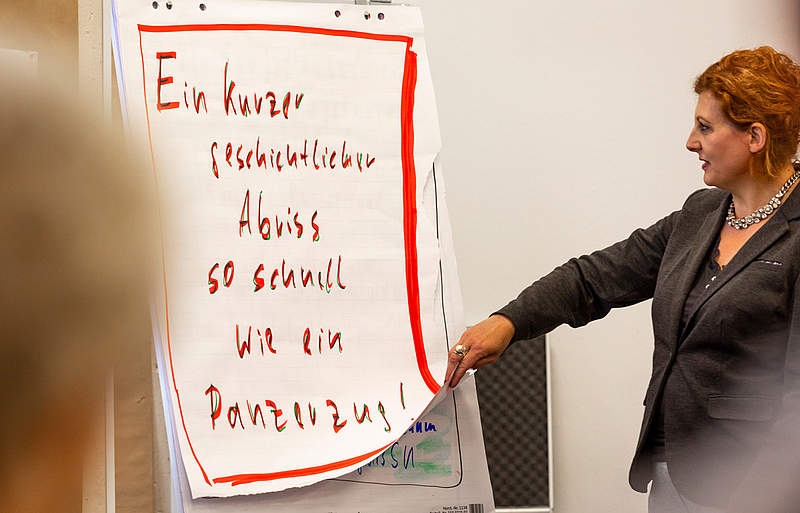 Ein kurzer
geschichtlicher
Abriss
so schnell
wie ein
Panzerzug!